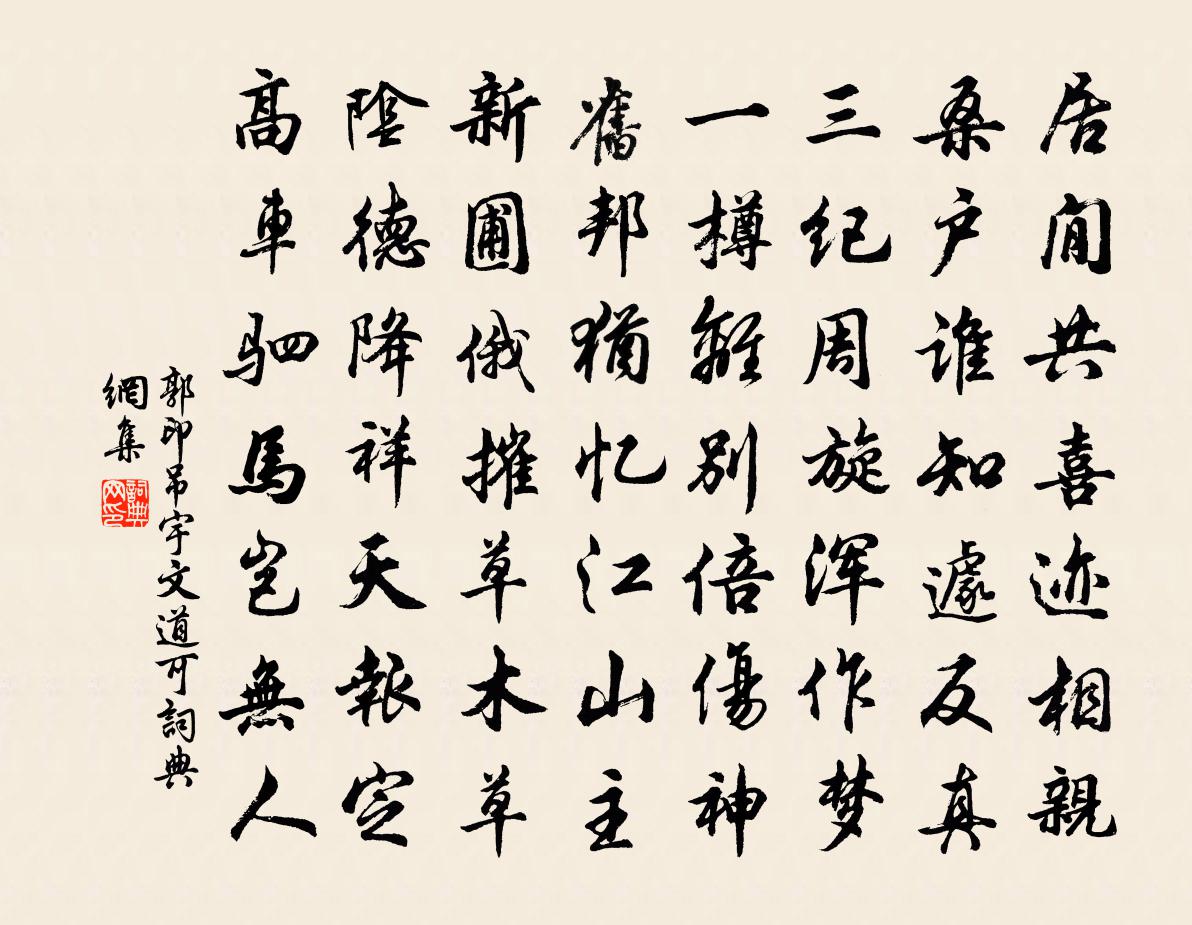 居闲共喜迹相親
桑户谁知遽反真
三纪周旋浑作梦
一樽離别倍傷神
舊邦猶忆江山主
新圃俄摧草木草
陰德降祥天報定
高車驷馬岂無人
郭印吊宇文道可詞典
網集
詞典
网印